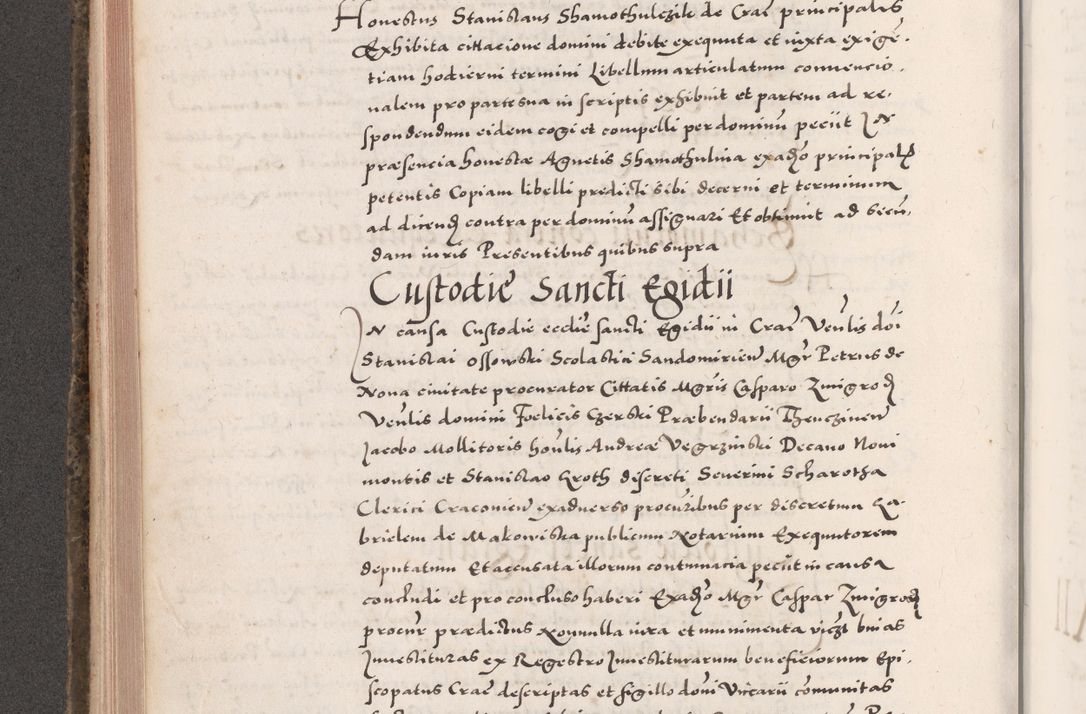 Honestus Stanislaus Shamothulczik de Crac principalis
Exhibita cittacione domini debite exequuta et iuxta exige-
tiam hodierni termini Libellum articulatum convencio-
nalem pro parte sua in scriptis exhibuit et partem ad re-
spondendum eidem cogi et compelli per dominum peciit IN
præsencia honestæ Agnetis Shamothulina ex adverso principalis
petentis Copiam libelli predicti sibi decerni et terminum
ad dicend contra per dominum assignari Et obtinuit ad secun-
dam iuris Presentibus quibus supra
Custodie Sancti Egidii
IN causa Custodie ecclie sancti Egidii in Crac Venlis dni
Stanislai Ossowski Scolastici Sandomirien Mgr Petrus de
Nova civitate procurator Cittatis Mgris Casparo Zmigrod
Venlis domini Foelicis Czerski Præbendarii Thenczinen
Jacobo Mollitoris honlis Andreæ Vegrzinski Decano Novi
montis et Stanislao Kroth discreti Severini Scharotha
Clerici Cracovien ex adverso procuribus per discretum Ga-
brielem de Makowiska publicum Notarium Exequutorem
deputatum Et accusata illorum contumacia peciit in causa
concludi et pro concluso haberi Ex adverso Mgr Caspar Zmigrod
procur prædictus Nonnulla iura et munimenta viczt binas
Investituras ex Regestro Investiturarum beneficiorum Epi-
scopatus Crac descriptas et sigillo domini Vicarii communitas